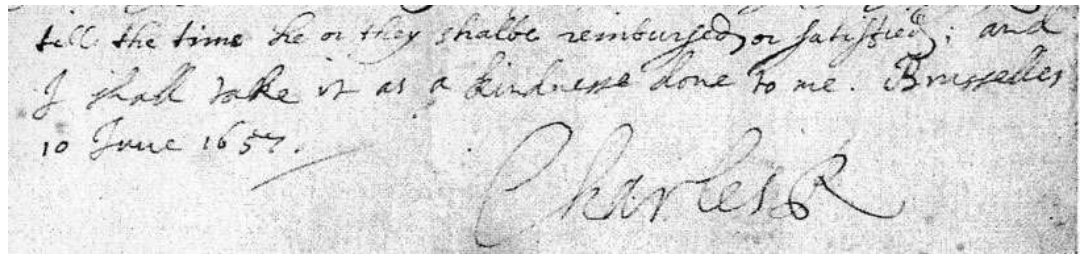 till the time he or they shalbe reimbursed or satisfied; and
I shall take it as a kindnesse done to me. Brusselles
10 June 1657.
Charles R